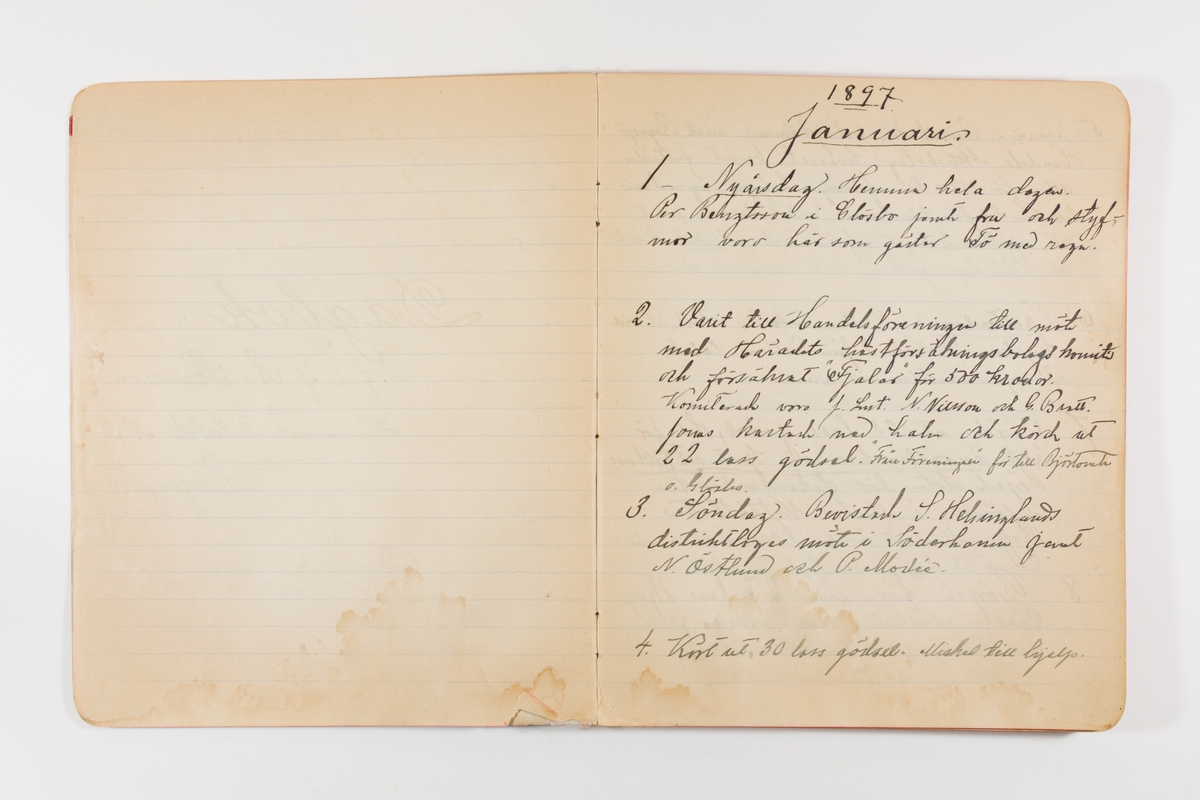 1897
Januari.
1 – Nyårsdag. Hemma hela dagen.
Per Bengtsson i Glösbo jemte fru och styf-
mor voro här som gäster Tö med regn.
2. Varit till Handelsföreningen till möte
med Häradets hästförsäkringsbolags komite
och försäkrat "Fjalar" för 500 kronor.
Komiterade voro f. Lnt. N. Nilsson och G. Bratt.
Jonas kastade ned halm och körde ut
22 lass gödsel. Från Föreningen för till
o. Glösbo.
3. Söndag. Bevistade S. Helsinglands
distriktloges möte i Söderhamn jemte
N. Östlund och P. Modée.
4. Kört ut 30 lass gödsel. Mickel till hjelp.
Dagbok